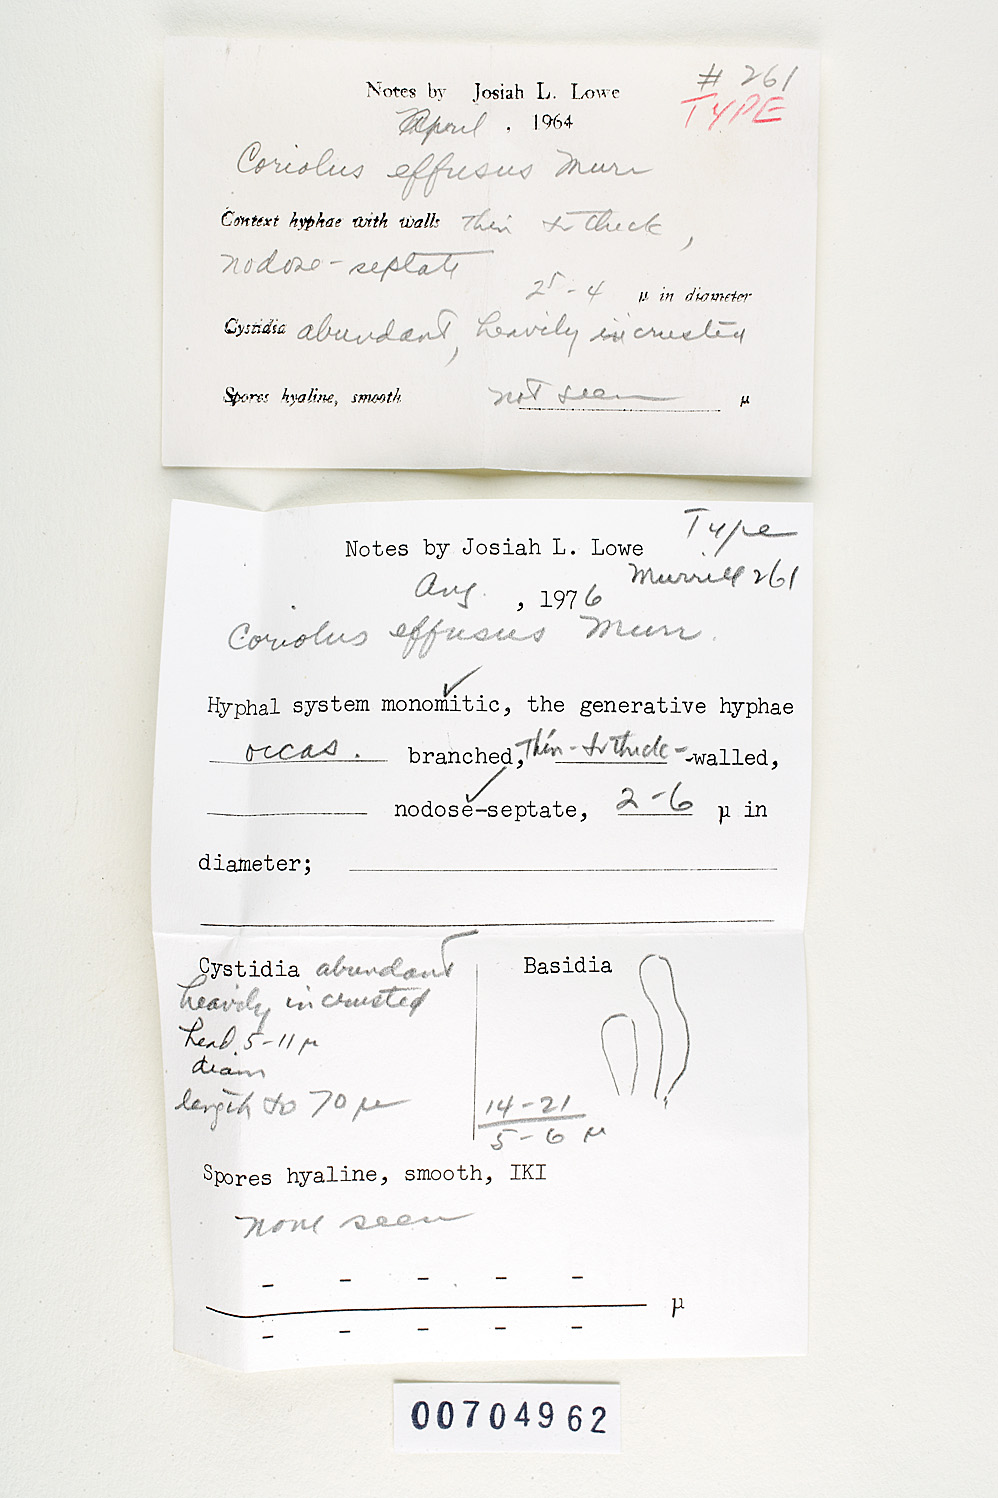 # 261
Notes by Josiah L. Lowe
TYPE
April, 1964
Coriolus effusus Murr
Context hyphae with walls thin to thick,
nodose-septate
2⁵-4 µ in diameter
Cystidia abundant, heavily incrusted
Spores hyaline, smooth not seen µ
Type
Notes by Josiah L. Lowe
Murrill 261
Aug. , 1976
Coriolus effusus Murr.
Hyphal system monomitic, the generative hyphae
occas. branched, thin-to thick- -walled,
nodose-septate, 2-6 µ in
diameter;
Cystidia abundant
heavily incrusted
head 5-11 µ
diam
length to 70 µ
Basidia
14-21
5-6 µ
Spores hyaline, smooth, IKI
none seen
- - - - -
µ
- - - - -
00704962